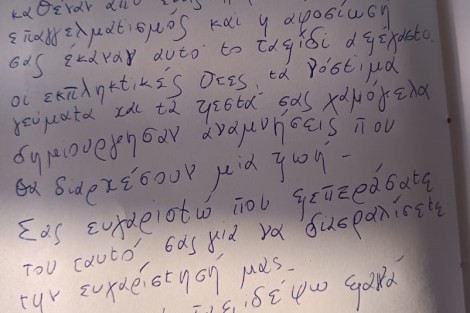 καθέναν από
επαγγελματισμός και η αφοσίωσή
σας έκαναν αυτό το ταξίδι αξέχαστο.
οι εκπληκτικές θέες, τα νόστιμα
γεύματα και τα ζεστά σας χαμόγελα
δημιούργησαν αναμνήσεις που
θα διαρκέσουν μια ζωή -
Σας ευχαριστώ που ξεπεράσατε
τον εαυτό σας για να διασφαλίσετε
την ευχαρίστησή μας.